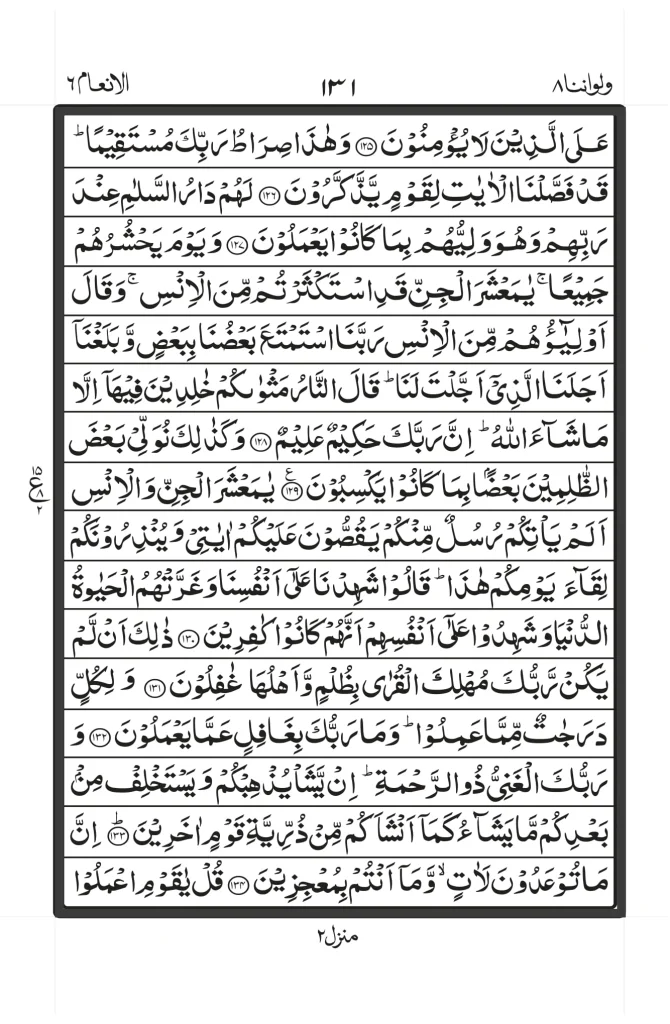 ولواننا ٨ ١٣١ الانعام ٦
عَلَى الَّذِيۡنَ لَا يُؤۡمِنُوۡنَ ﴿۱۲۵﴾ وَهٰذَا صِرَاطُ رَبِّكَ مُسۡتَقِيۡمًا ؕ
قَدۡ فَصَّلۡنَا الۡاٰيٰتِ لِقَوۡمٍ يَّذَّكَّرُوۡنَ ﴿۱۲۶﴾ لَهُمۡ دَارُ السَّلٰمِ عِنۡدَ
رَبِّهِمۡ وَهُوَ وَلِيُّهُمۡ بِمَا كَانُوۡا يَعۡمَلُوۡنَ ﴿۱۲۷﴾ وَيَوۡمَ يَحۡشُرُهُمۡ
جَمِيۡعًا ۚ يٰمَعۡشَرَ الۡجِنِّ قَدِ اسۡتَكۡثَرۡتُمۡ مِّنَ الۡاِنۡسِ ۚ وَقَالَ
اَوۡلِيٰٓـؤُهُمۡ مِّنَ الۡاِنۡسِ رَبَّنَا اسۡتَمۡتَعَ بَعۡضُنَا بِبَعۡضٍ وَّبَلَغۡنَاۤ
اَجَلَنَا الَّذِىۡۤ اَجَّلۡتَ لَنَا ؕ قَالَ النَّارُ مَثۡوٰٮكُمۡ خٰلِدِيۡنَ فِيۡهَاۤ اِلَّا
مَا شَآءَ اللّٰهُ ؕ اِنَّ رَبَّكَ حَكِيۡمٌ عَلِيۡمٌ ﴿۱۲۸﴾ وَكَذٰلِكَ نُوَلِّىۡ بَعۡضَ
الظّٰلِمِيۡنَ بَعۡضًاۢ بِمَا كَانُوۡا يَكۡسِبُوۡنَ ﴿۱۲۹﴾ ع يٰمَعۡشَرَ الۡجِنِّ وَالۡاِنۡسِ
١٥ ع ٨ ٢
اَلَمۡ يَاۡتِكُمۡ رُسُلٌ مِّنۡكُمۡ يَقُصُّوۡنَ عَلَيۡكُمۡ اٰيٰتِىۡ وَيُنۡذِرُوۡنَكُمۡ
لِقَآءَ يَوۡمِكُمۡ هٰذَا ؕ قَالُوۡا شَهِدۡنَا عَلٰٓى اَنۡفُسِنَا وَغَرَّتۡهُمُ الۡحَيٰوةُ
الدُّنۡيَا وَشَهِدُوۡا عَلٰٓى اَنۡفُسِهِمۡ اَنَّهُمۡ كَانُوۡا كٰفِرِيۡنَ ﴿۱۳۰﴾ ذٰلِكَ اَنۡ لَّمۡ
يَكُنۡ رَّبُّكَ مُهۡلِكَ الۡقُرٰى بِظُلۡمٍ وَّاَهۡلُهَا غٰفِلُوۡنَ ﴿۱۳۱﴾ وَلِكُلٍّ
دَرَجٰتٌ مِّمَّا عَمِلُوۡا ؕ وَمَا رَبُّكَ بِغَافِلٍ عَمَّا يَعۡمَلُوۡنَ ﴿۱۳۲﴾ وَ
رَبُّكَ الۡغَنِىُّ ذُو الرَّحۡمَةِ ؕ اِنۡ يَّشَاۡ يُذۡهِبۡكُمۡ وَيَسۡتَخۡلِفۡ مِنۡۢ
بَعۡدِكُمۡ مَّا يَشَآءُ كَمَاۤ اَنۡشَاَكُمۡ مِّنۡ ذُرِّيَّةِ قَوۡمٍ اٰخَرِيۡنَ ﴿۱۳۳﴾ ؕ اِنَّ
مَا تُوۡعَدُوۡنَ لَاٰتٍ ۙ وَّمَاۤ اَنۡتُمۡ بِمُعۡجِزِيۡنَ ﴿۱۳۴﴾ قُلۡ يٰقَوۡمِ اعۡمَلُوۡا
منزل ٢